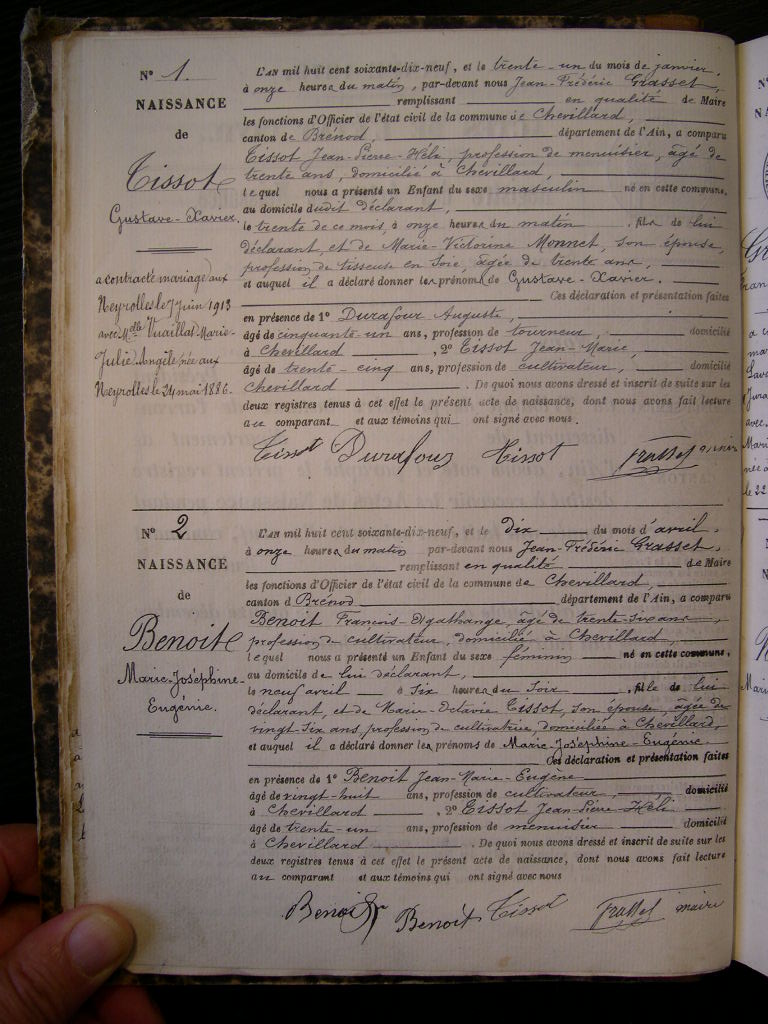 N° 1.
NAISSANCE
de
Tissot
Gustave-Xavier.
a contracté mariage aux
Neyrolles le 7 juin 1913
avec Melle Vuaillat Marie-
Julie Angèle née aux
Neyrolles le 24 mai 1886.
L'AN mil huit cent soixante-dix-neuf, et le trente-un du mois de janvier,
à onze heures du matin, par-devant nous Jean-Frédéric Grasset,
remplissant en qualité de Maire
les fonctions d'Officier de l'état civil de la commune de Chevillard,
canton de Brénod, département de l'Ain, a comparu
Tissot Jean-Pierre-Héli, profession de menuisier, âgé de
trente ans, domicilié à Chevillard,
lequel nous a présenté un Enfant du sexe masculin né en cette commune,
au domicile dudit déclarant,
le trente de ce mois, à onze heures du matin, fils de lui
déclarant, et de Marie-Victorine Monnet, son épouse,
profession de tisseuse en soie, âgée de trente ans,
et auquel il a déclaré donner les prénoms de Gustave-Xavier.
Ces déclaration et présentation faites
en présence de 1° Durafour Auguste,
âgé de cinquante-un ans, profession de tourneur, domicilié
à Chevillard, 2° Tissot Jean-Marie,
âgé de trente-cinq ans, profession de cultivateur, domicilié
Chevillard. De quoi nous avons dressé et inscrit de suite sur les
deux registres tenus à cet effet le présent acte de naissance, dont nous avons fait lecture
au comparant et aux témoins qui ont signé avec nous.
Tissot Durafour Tissot Grasset maire
N° 2
NAISSANCE
de
Benoit
Marie-Joséphine-
Eugénie.
L'AN mil huit cent soixante-dix-neuf, et le dix du mois d'avril,
à onze heures du matin par-devant nous Jean-Frédéric Grasset,
remplissant en qualité de Maire
les fonctions d'Officier de l'état civil de la commune de Chevillard,
canton d Brénod département de l'Ain, a comparu
Benoit François-Agathange, âgé de trente-six ans,
profession de cultivateur, domicilié à Chevillard,
lequel nous a présenté un Enfant du sexe féminin né en cette commune,
au domicile de lui déclarant,
le neuf avril à six heures du soir, fille de lui
déclarant, et de Marie-Octavie Tissot, son épouse, âgée de
vingt-six ans, profession de cultivatrice, domiciliée à Chevillard,
et auquel il a déclaré donner les prénoms de Marie-Joséphine-Eugénie.
Ces déclaration et présentation faites
en présence de 1° Benoit Jean-Marie-Eugène
âgé de vingt-huit ans, profession de cultivateur, domicilié
à Chevillard, 2° Tissot Jean-Pierre-Héli
âgé de trente-un ans, profession de menuisier domicilié
à Chevillard. De quoi nous avons dressé et inscrit de suite sur les
deux registres tenus à cet effet le présent acte de naissance, dont nous avons fait lecture
au comparant et aux témoins qui ont signé avec nous
Benoit Benoit Tissot Grasset maire